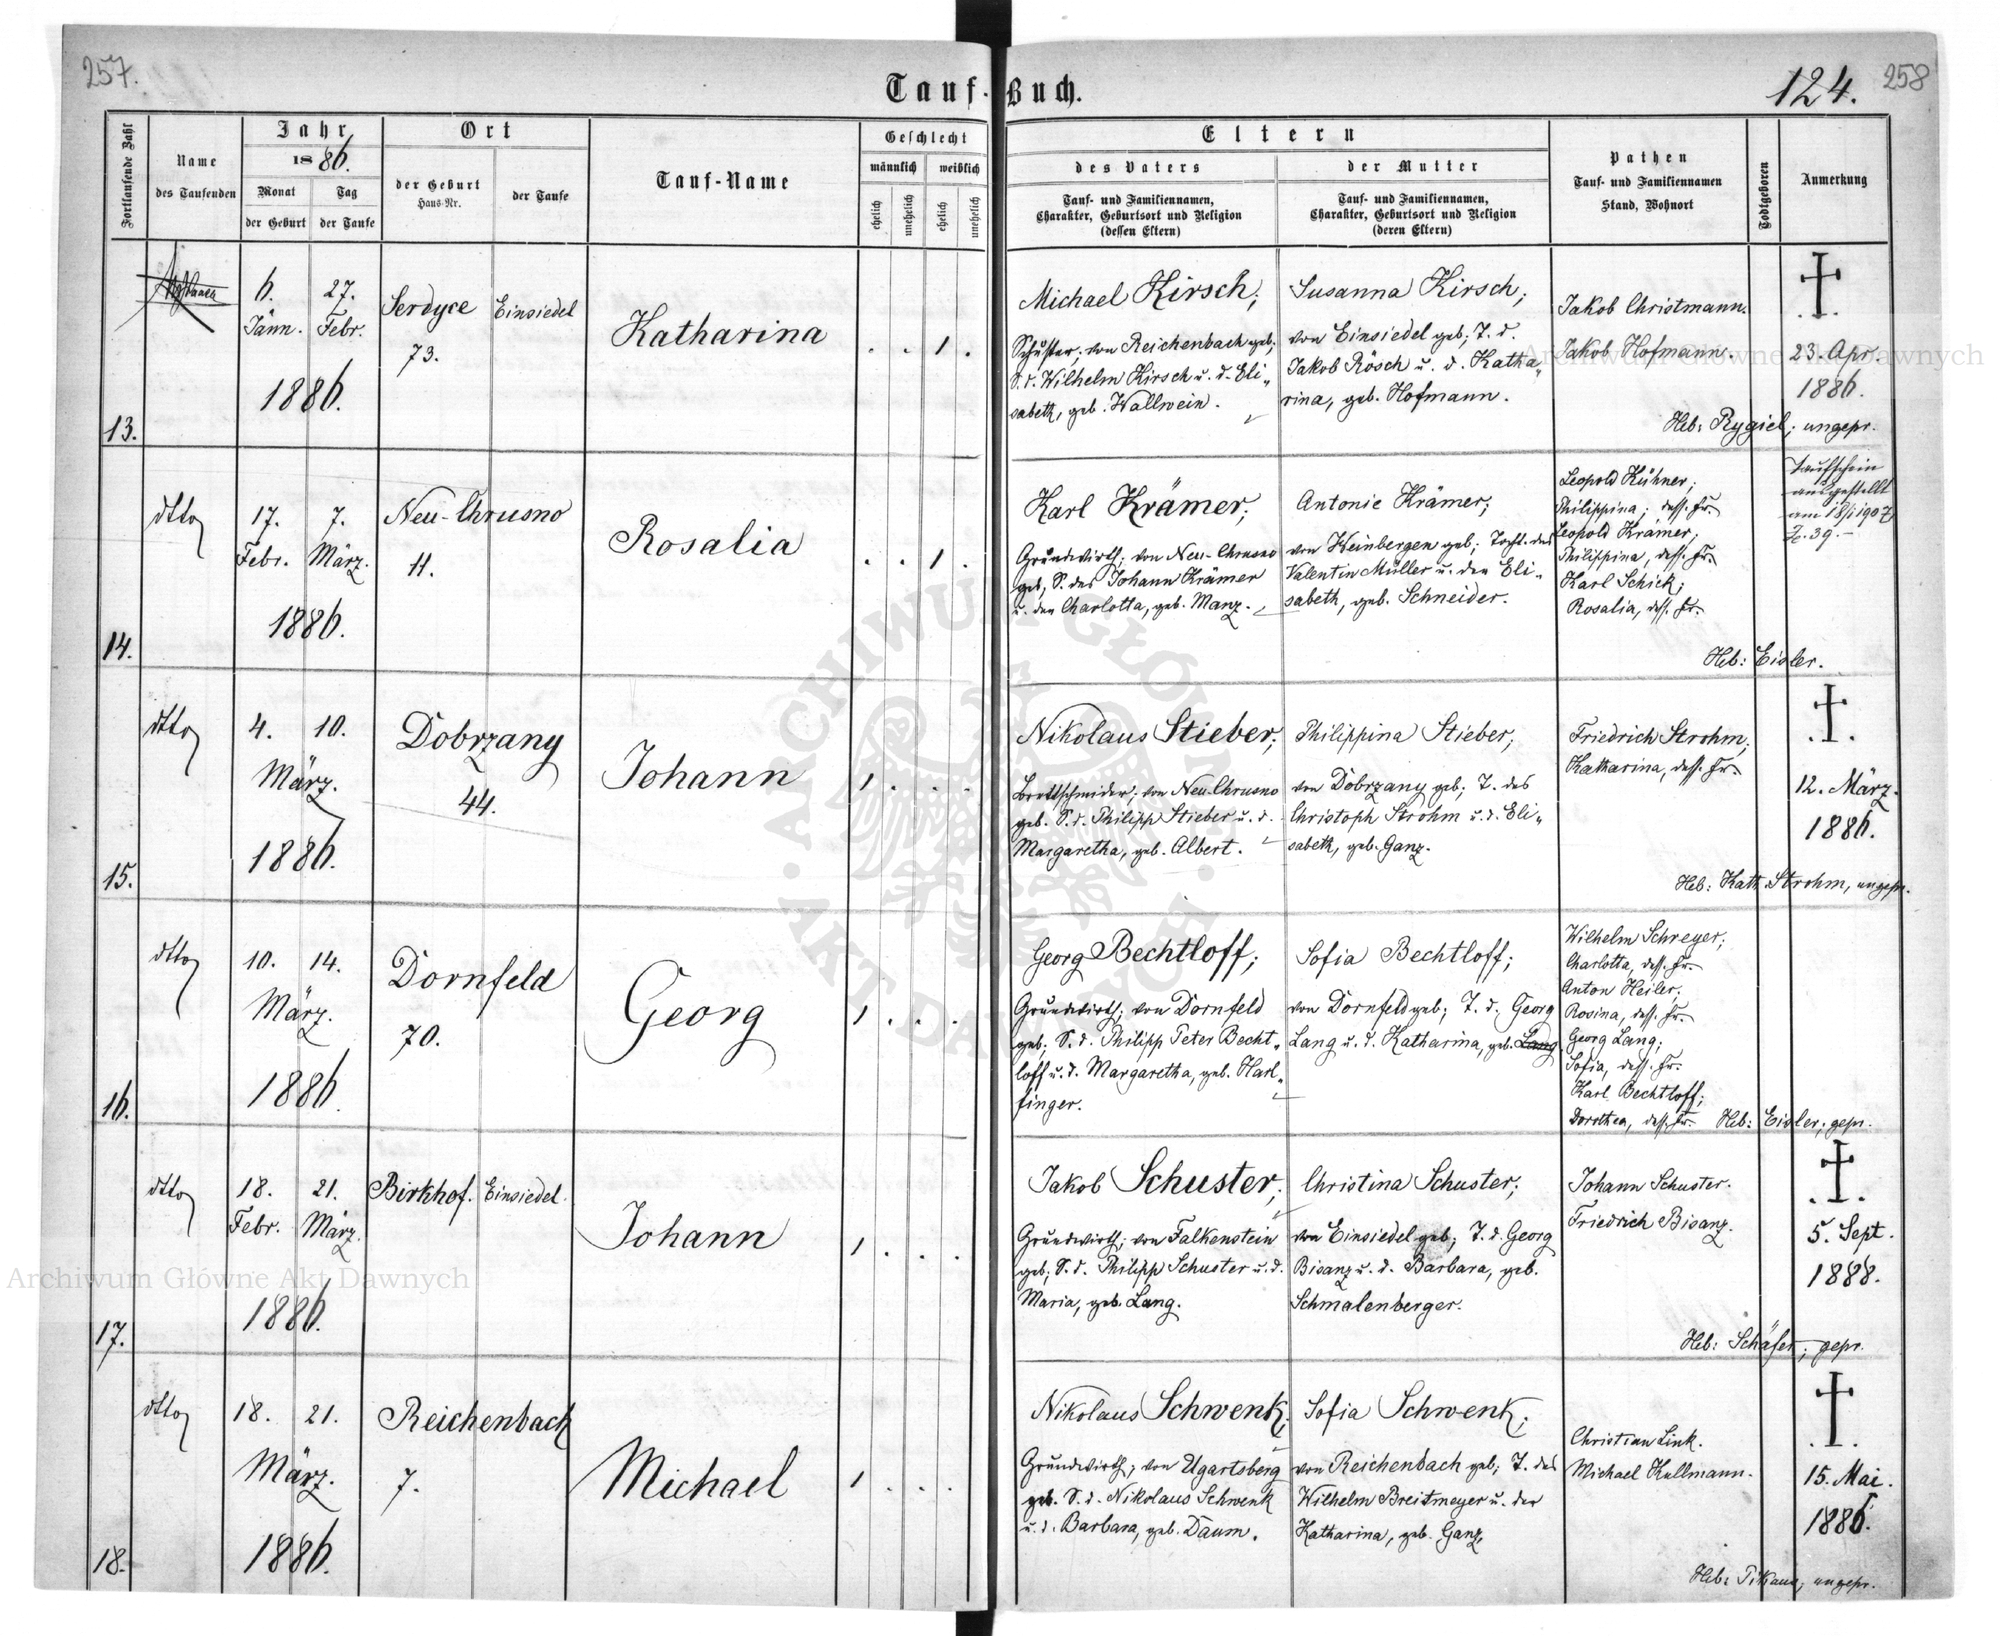 257.
Tauf-Buch.
124.
258
Fortlaufende Zahl
Name
des Taufenden
Jahr
1886.
Monat
der Geburt
Tag
der Taufe
Ort
der Geburt
Haus-Nr.
der Taufe
Tauf-Name
Geschlecht
männlich
weiblich
ehelich
unehelich
ehelich
unehelich
Eltern
des Vaters
Tauf- und Familiennamen,
Charakter, Geburtsort und Religion
(dessen Eltern)
der Mutter
Tauf- und Familiennamen,
Charakter, Geburtsort und Religion
(deren Eltern)
Pathen
Tauf- und Familiennamen
Stand, Wohnort
Todtgeboren
Anmerkung
13.
6.
Jänn.
27.
Febr.
1886.
Serdyce
73.
Einsiedel
Katharina
. . 1 .
Michael Kirsch;
Schuster; von Reichenbach geb;
S. d. Wilhelm Kirsch u. d. Eli„
sabeth, geb. Wallwein.
Susanna Kirsch;
von Einsiedel geb; T. d.
Jakob Rösch u. d. Katha„
rina, geb. Hofmann.
Jakob Christmann.
Jakob Hofmann.
23. Apr.
1886.
Heb: Rygiel; ungepr.
14.
dtto
17.
Febr.
7.
März.
1886.
Neu-Chrusno
11.
Rosalia
. . 1 .
Karl Krämer;
Grundwirth; von Neu-Chrusno
geb, S. des Johann Krämer
u. der Charlotta, geb. Manz.
Antonie Krämer;
von Weinbergen geb; Tocht. des
Valentin Müller u. der Eli„
sabeth, geb. Schneider.
Leopold Kühner;
Philippina; dess. Fr.
Leopold Krämer;
Philippina, dess. Fr.
Karl Schick;
Rosalia, dess. Fr.
Taufschein
ausgestellt
am 18/1 1907
Z. 39.–
Heb: Eisler.
15.
dtto
4. 10.
März.
1886.
Dobrzany
44.
Johann
1 . . .
Nikolaus Stieber;
Brettschneider; von Neu-Chrusno
geb. S. d. Philipp Stieber u. d.
Margaretha, geb. Albert.
Philippina Stieber;
von Dobrzany geb; T. des
Christoph Strohm u. d. Eli„
sabeth, geb. Ganz.
Friedrich Strohm;
Katharina, dess. Fr.
12. März.
1886.
Heb: Kath. Strohm, ungepr.
16.
dtto
10. 14.
März.
1886.
Dornfeld
70.
Georg
1 . . .
Georg Bechtloff;
Grundwirth; von Dornfeld
geb; S. d. Philipp Peter Becht„
loff u. d. Margaretha, geb. Harl„
finger.
Sofia Bechtloff;
von Dornfeld geb; T. d. Georg
Lang u. d. Katharina, geb. Lang
Wilhelm Schreyer;
Charlotta, dess. Fr.
Anton Heiler;
Rosina, dess. Fr.
Georg Lang;
Sofia, dess. Fr.
Karl Bechtloff;
Dorothea, dess. Fr.
Heb: Eisler; gepr.
17.
dtto
18.
Febr.
21.
März.
1886.
Birkhof.
Einsiedel.
Johann
1 . . .
Jakob Schuster;
Grundwirth; von Falkenstein
geb; S. d. Philipp Schuster u. d.
Maria, geb. Lang.
Christina Schuster;
von Einsiedel geb; T. d. Georg
Bisanz u. d. Barbara, geb.
Schmalenberger.
Johann Schuster.
Friedrich Bisanz.
5. Sept.
1888.
Heb: Schäfer; gepr.
18.
dtto
18. 21.
März.
1886.
Reichenbach
7.
Michael
1 . . .
Nikolaus Schwenk;
Grundwirth; von Ugartsberg
geb. S. d. Nikolaus Schwenk
u. d. Barbara, geb. Daum.
Sofia Schwenk;
von Reichenbach geb; T. des
Wilhelm Breitmeyer u. der
Katharina, geb. Ganz.
Christian Link.
Michael Kullmann.
15. Mai.
1886.
Heb: Pikaus; ungepr.
Archiwum Główne Akt Dawnych
Archiwum Główne Akt Dawnych
ARCHIWUM GŁÓWNE AKT DAWNYCH